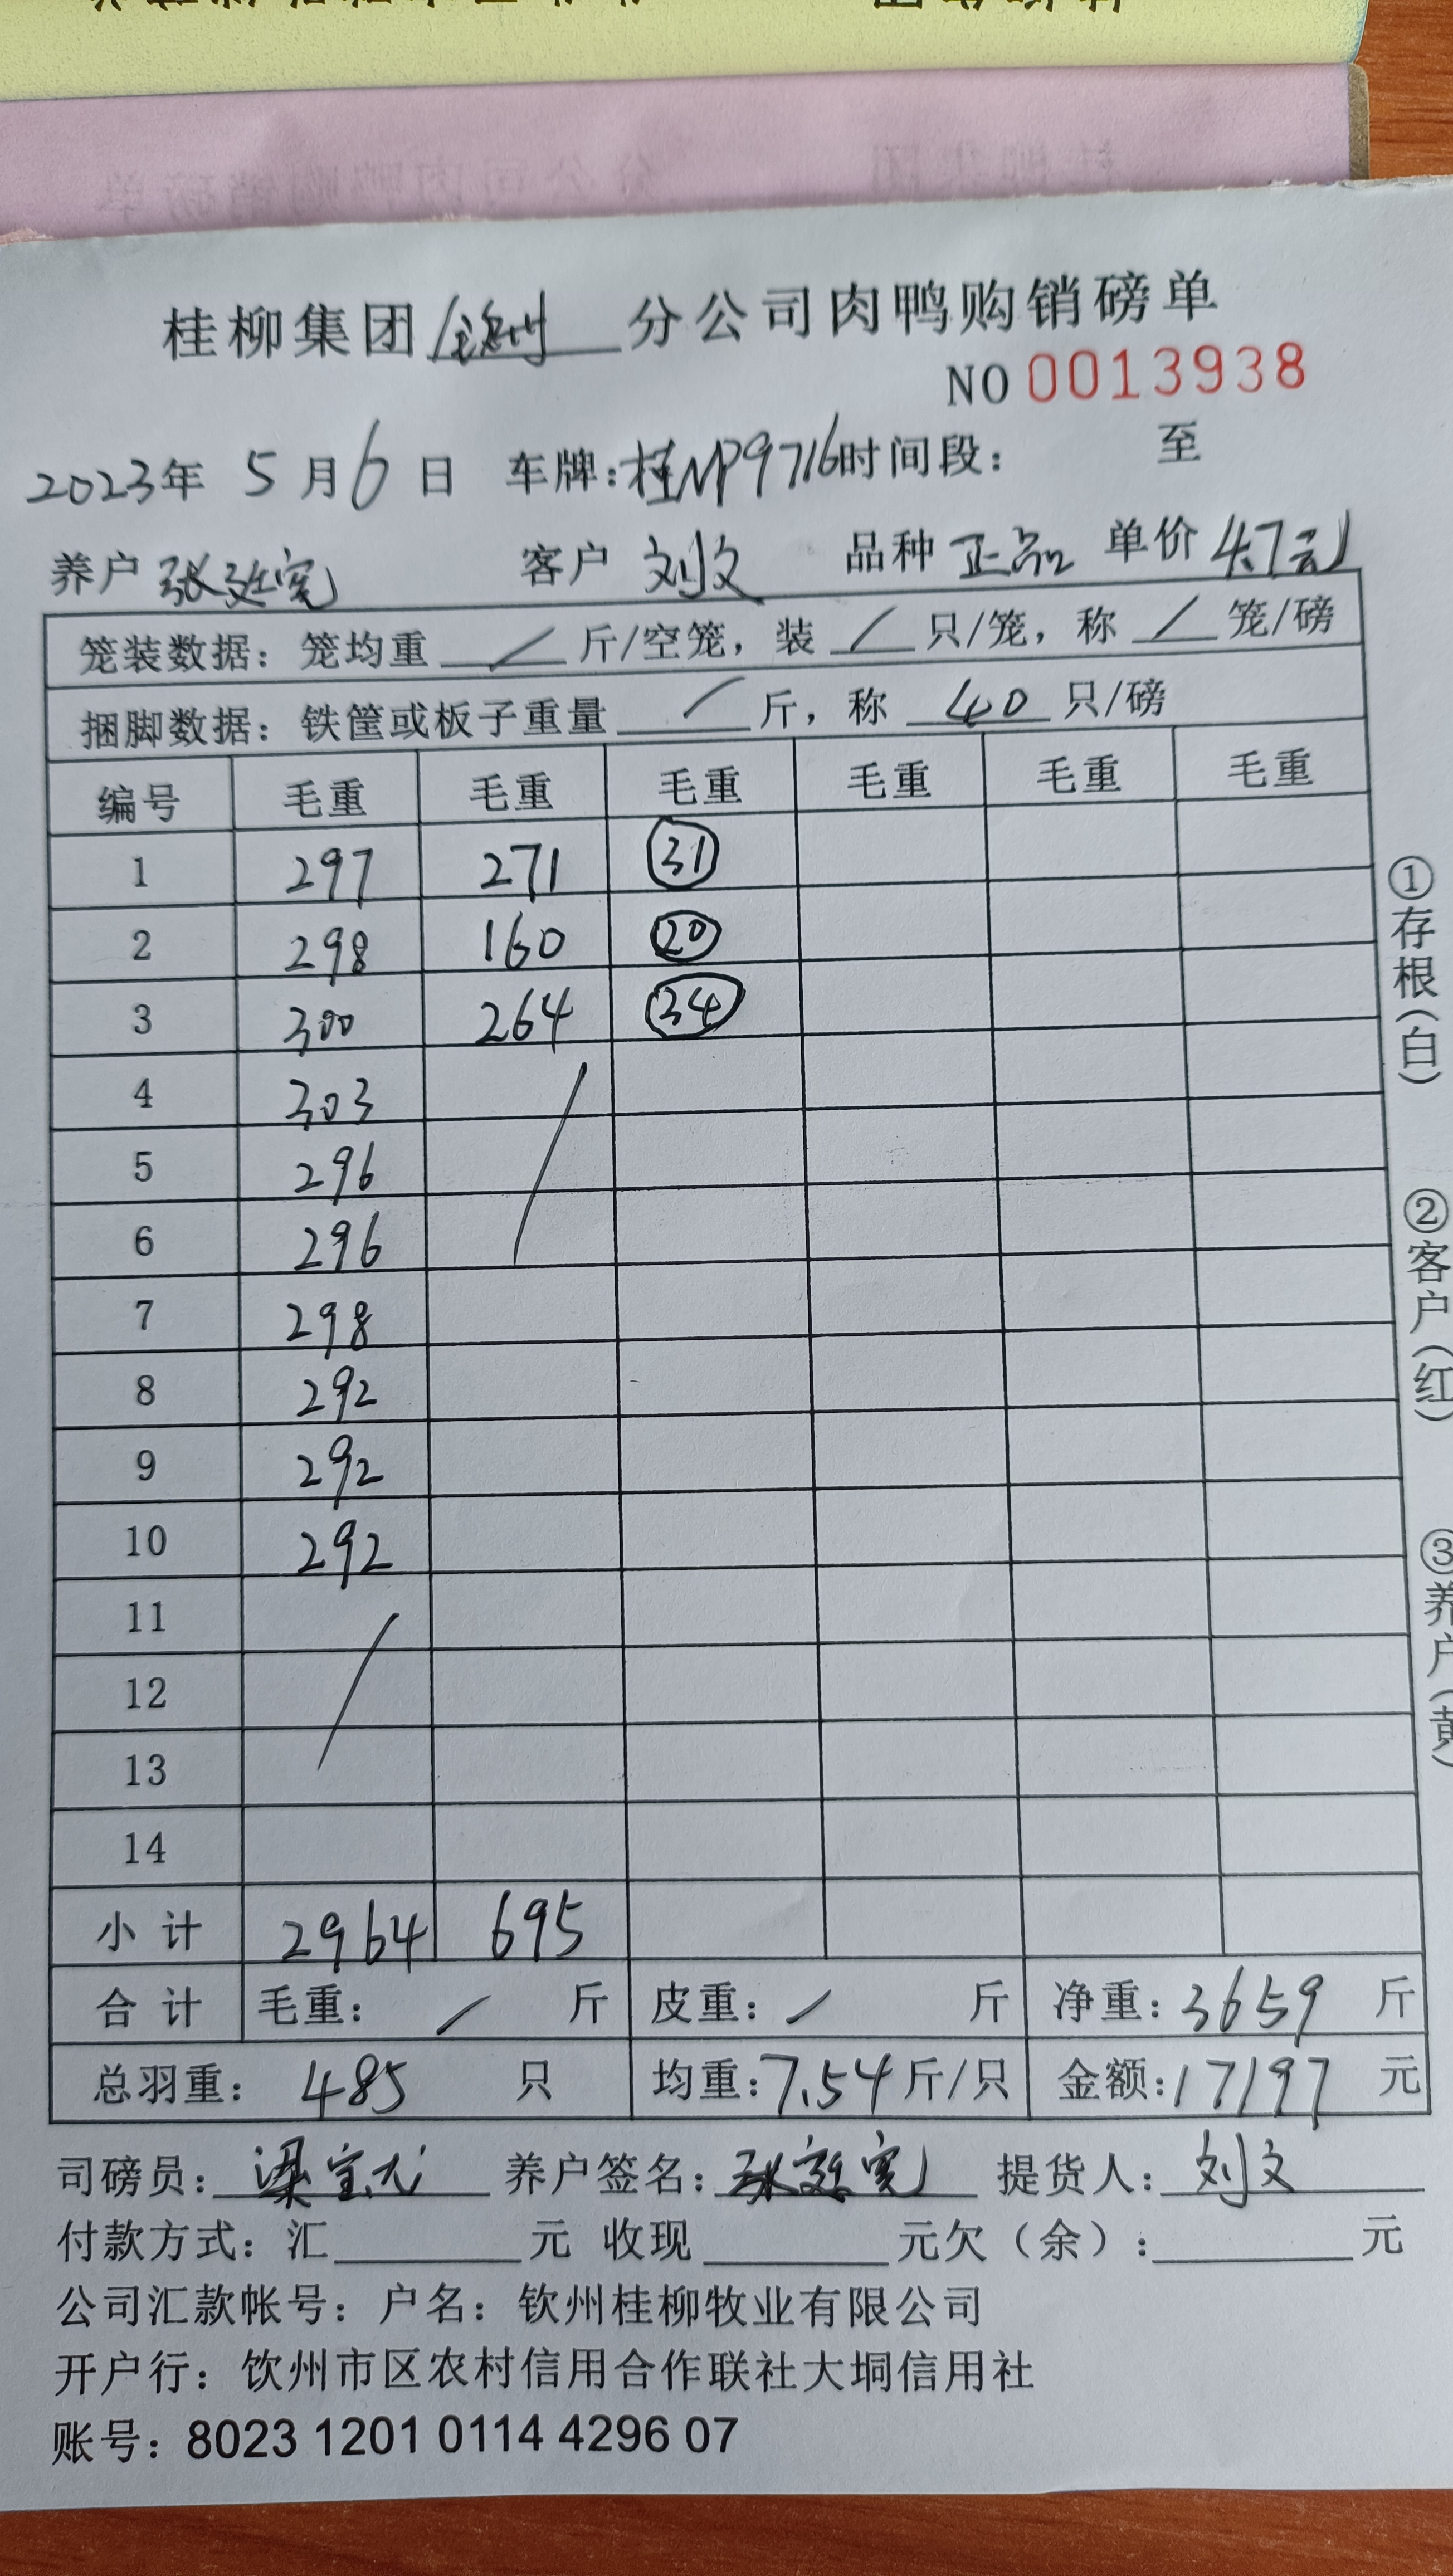 桂柳集团钦州分公司肉鸭购销磅单
NO 0013938
2023年 5月6日 车牌:桂NP9716时间段: 至
养户 张廷宽 客户 刘文 品种 正品 单价 4.7元
笼装数据: 笼均重 / 斤/空笼, 装 / 只/笼, 称 / 笼/磅
捆脚数据: 铁筐或板子重量 / 斤, 称 40 只/磅
编号 毛重 毛重 毛重 毛重 毛重 毛重
1 297 271 31
2 298 160 20
3 300 264 34
4 303
5 296
6 296
7 298
8 292
9 292
10 292
11
12
13
14
小计 2964 695
合计 毛重: / 斤 皮重: / 斤 净重: 3659 斤
总羽重: 485 只 均重: 7.54 斤/只 金额: 17197 元
司磅员: 养户签名: 张廷宽 提货人: 刘文
付款方式: 汇 元 收现 元欠(余): 元
公司汇款帐号: 户名: 钦州桂柳牧业有限公司
开户行: 钦州市区农村信用合作联社大垌信用社
账号: 8023 1201 0114 4296 07
①存根(白)
②客户(红)
③养户(黄)